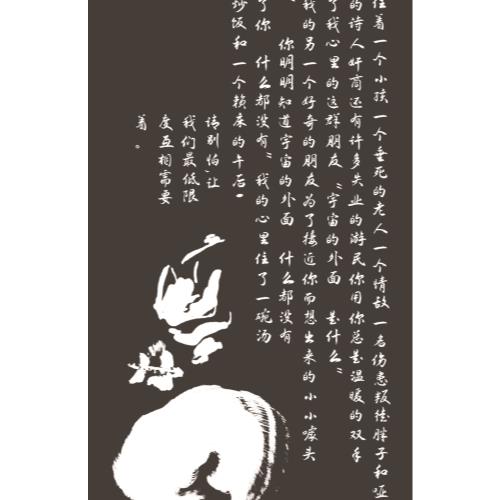 住着一个小孩一个垂死的老人一个情敌一名伤患叛徒胖子和哑
的诗人奸商还有许多失业的游民你用你总是温暖的双手
了我心里的这群朋友 “宇宙的外面 是什么”
我的另一个好奇的朋友为了接近你而想出来的小小噱头
你明明知道宇宙的外面 什么都没有
了你 什么都没有” 我的心里住了一碗汤
炒饭和一个赖床的午后
请别怕,让
我们最低限
度互相需要
着。